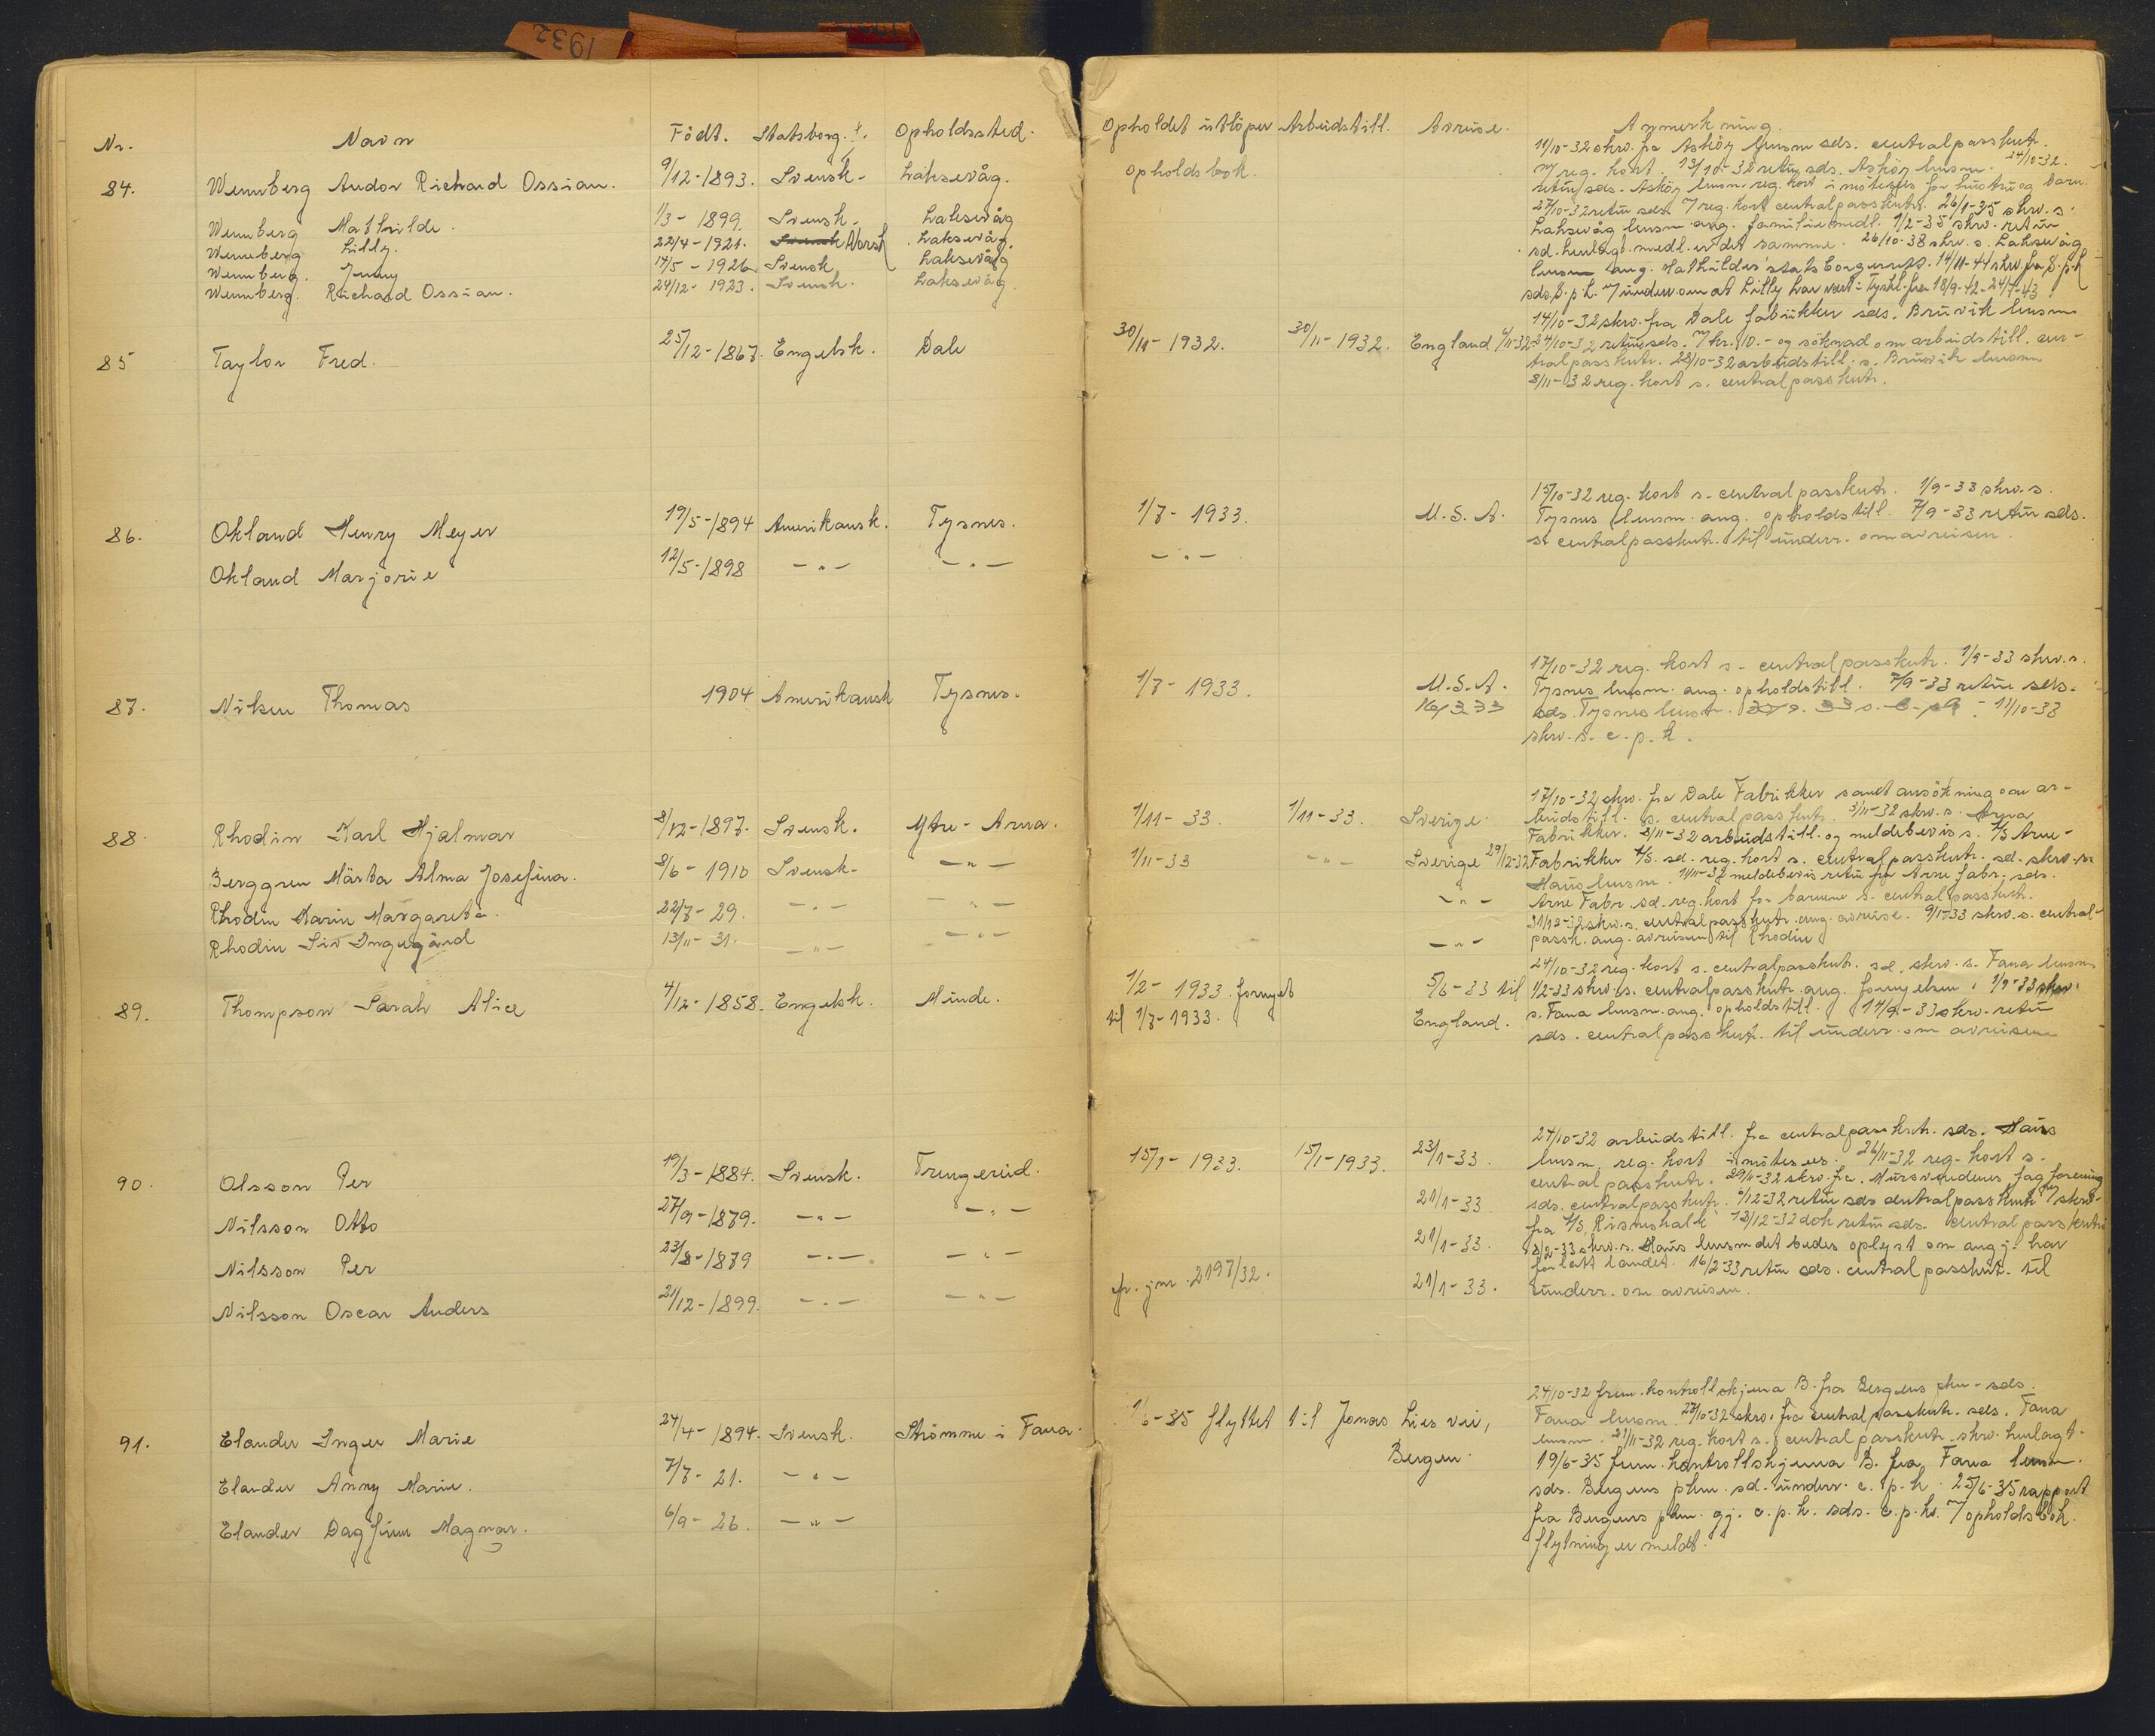 1932
Nr. Navn Födt. Statsborg. Opholdssted. Opholdet utlöper Arbeidstill. Avreise. Anmerkning.
84. Wennberg Andor Richard Ossian. 9/12-1893. Svensk. Laksevåg. Opholdsbok.
Wennberg Mathilde. 1/3-1899. Svensk. Laksevåg
Wennberg Lilly. 22/4-1921. Svensk Norsk Laksevåg.
Wennberg. Jenny 14/5-1926 Svensk Laksevåg
Wennberg. Richard Ossian. 24/12-1923. Svensk. Laksevåg
11/10-32 skrv. fra Asköy lensm sds. centralpasskntr.
m/ reg. kort. 13/10-32 retur sds. Asköy lensm. 24/10-32.
retur sds. Asköy lensm. reg. kort imötesees for hustru og barn.
27/10-32 retur sds. m/ reg. kort centralpasskntr. 26/1-35 skrv. s.
Laksevåg lensm. ang. familiemedl. 1/2-35 skrv. retur
sd. henlagt medl. er det samme. 26/10-38 skrv. s. Laksevåg
lensm ang. Mathildes statsborgerrett. 14/11-41 skrv. fra S.p.k
sds. S.p.k. m/ underr. om at Lilly har vært i Tyskl. fra 18/9-42-24/7-43.
85 Taylor Fred. 25/12-1867. Engelsk. Dale 30/11-1932. 30/11-1932. England 6/11-32
14/10-32 skrv. fra Dale fabrikker sds. Bruvik lensm
24/10-32 retur sds. m/ kr. 10.- og söknad om arbeidstill. cen-
tralpasskntr. 28/10-32 arbeidstill. s. Bruvik lensm
8/11-32 reg. kort s. centralpasskntr.
86. Okland Henry Meyer 19/5-1894 Amerikansk. Tysnes. 1/7-1933. U.S.A.
Okland Marjorie 12/5-1898 -"- -"- -"-
15/10-32 reg. kort s. centralpasskntr. 1/9-33 skrv. s.
Tysnes lensm. ang. opholdstill. 7/9-33 retur sds.
s. centralpasskntr. til underr. om avreisen.
87. Nilsen Thomas 1904 Amerikansk Tysnes. 1/7-1933. U.S.A.
17/10-32 reg. kort s. centralpasskntr. 1/9-33 skrv. s.
Tysnes lensm. ang. opholdstill. 7/9-33 retur sds.
sds. Tysnes lensm. 11/10-33
skrv. s. c.p.k.
88 Rhodin Karl Hjalmar 8/12-1897. Svensk. Ytre-Arna. 1/11-33. 1/11-33. Sverige.
Berggren Märta Alma Josefina. 8/6-1910 Svensk. -"- 1/11-33 -"- Sverige 29/12-32
Rhodin Karin Margareta. 22/7-29. -"- -"- -"-
Rhodin Siv Ingegärd 13/11-31. -"- -"- -"-
17/10-32 skrv. fra Dale Fabrikker samt ansökning om ar-
beidstill. s. centralpasskntr. 3/11-32 skrv. s. Arna
Fabrikker. 8/11-32 arbeidstill. og meldebevis s. A/S Arne-
Fabrikker A/S. sd. reg. kort s. centralpasskntr. sd. skrv. s.
Haus lensm. 11/11-32 meldebevis retur fra Arne fabr. sds.
Arne Fabr. sd. reg. kort for barnene s. centralpasskntr.
31/12-32 skrv. s. centralpasskntr. ang. avreise. 9/1-33 skrv. s. central-
passk. ang. avreisen til Rhodin
89. Thompson Sarah Alice 4/12-1858. Engelsk. Minde. 1/2-1933. fornyet 5/6-33 til
til 1/7-1933. England.
24/10-32 reg. kort s. centralpasskntr. sd. skrv. s. Fana lensm
1/2-33 skrv. s. centralpasskntr. ang. fornyelsen. 1/9-33 skrv.
s. Fana lensm. ang. opholdstill. 14/9-33 skrv. retur
sds. centralpasskntr. til underr. om avreisen
90. Olsson Per 19/3-1884. Svensk. Trengereid. 15/1-1933. 15/1-1933. 23/1-33.
Nilsson Otto 27/9-1879. -"- -"- 21/1-33
Nilsson Per 23/8-1879 -"- -"- 21/1-33.
Nilsson Oscar Anders 21/12-1899. -"- -"- cfr. jnr. 2197/32. 21/1-33.
24/10-32 arbeidstill. fra centralpasskntr. sds. Haus
lensm. reg. kort imötesees. 26/11-32 reg. kort s.
centralpasskntr. 29/11-32 skrv. fra Mursvendenes fagforening
sds. centralpasskntr. 6/12-32 retur sds centralpasskntr m/ skrv.
fra A/S Rismehalk 13/12-32 dok retur sds. centralpasskntr
8/2-33 skrv. s. Haus lensm det bedes oplyst om angj. har
forlatt landet. 16/2-33 retur sds. centralpasskntr. til
underr. om avreisen.
91. Elander Inger Marie 24/4-1894. Svensk. Strömme i Fana. 1/6-35 flyttet til Jonas Lies vei,
Bergen.
Elander Anny Marie. 7/7-21. -"-
Elander Dagfinn Magnar. 6/9-26. -"-
24/10-32 frem. kontrollskjema B. fra Bergens pkm. sds.
Fana lensm. 27/10-32 skrv. fra centralpasskntr. sds. Fana
lensm. 21/11-32 reg. kort s. centralpasskntr. skrv. henlagt.
19/6-35 frem. kontrollskjema B. fra Fana lensm.
sds. Bergens pkm. sd. underr. c.p.k. 25/6-35 rapport
fra Bergens pkm. gj. c.p.k. sds. c.p.k. m/ opholdsbok.
flytning er meldt.